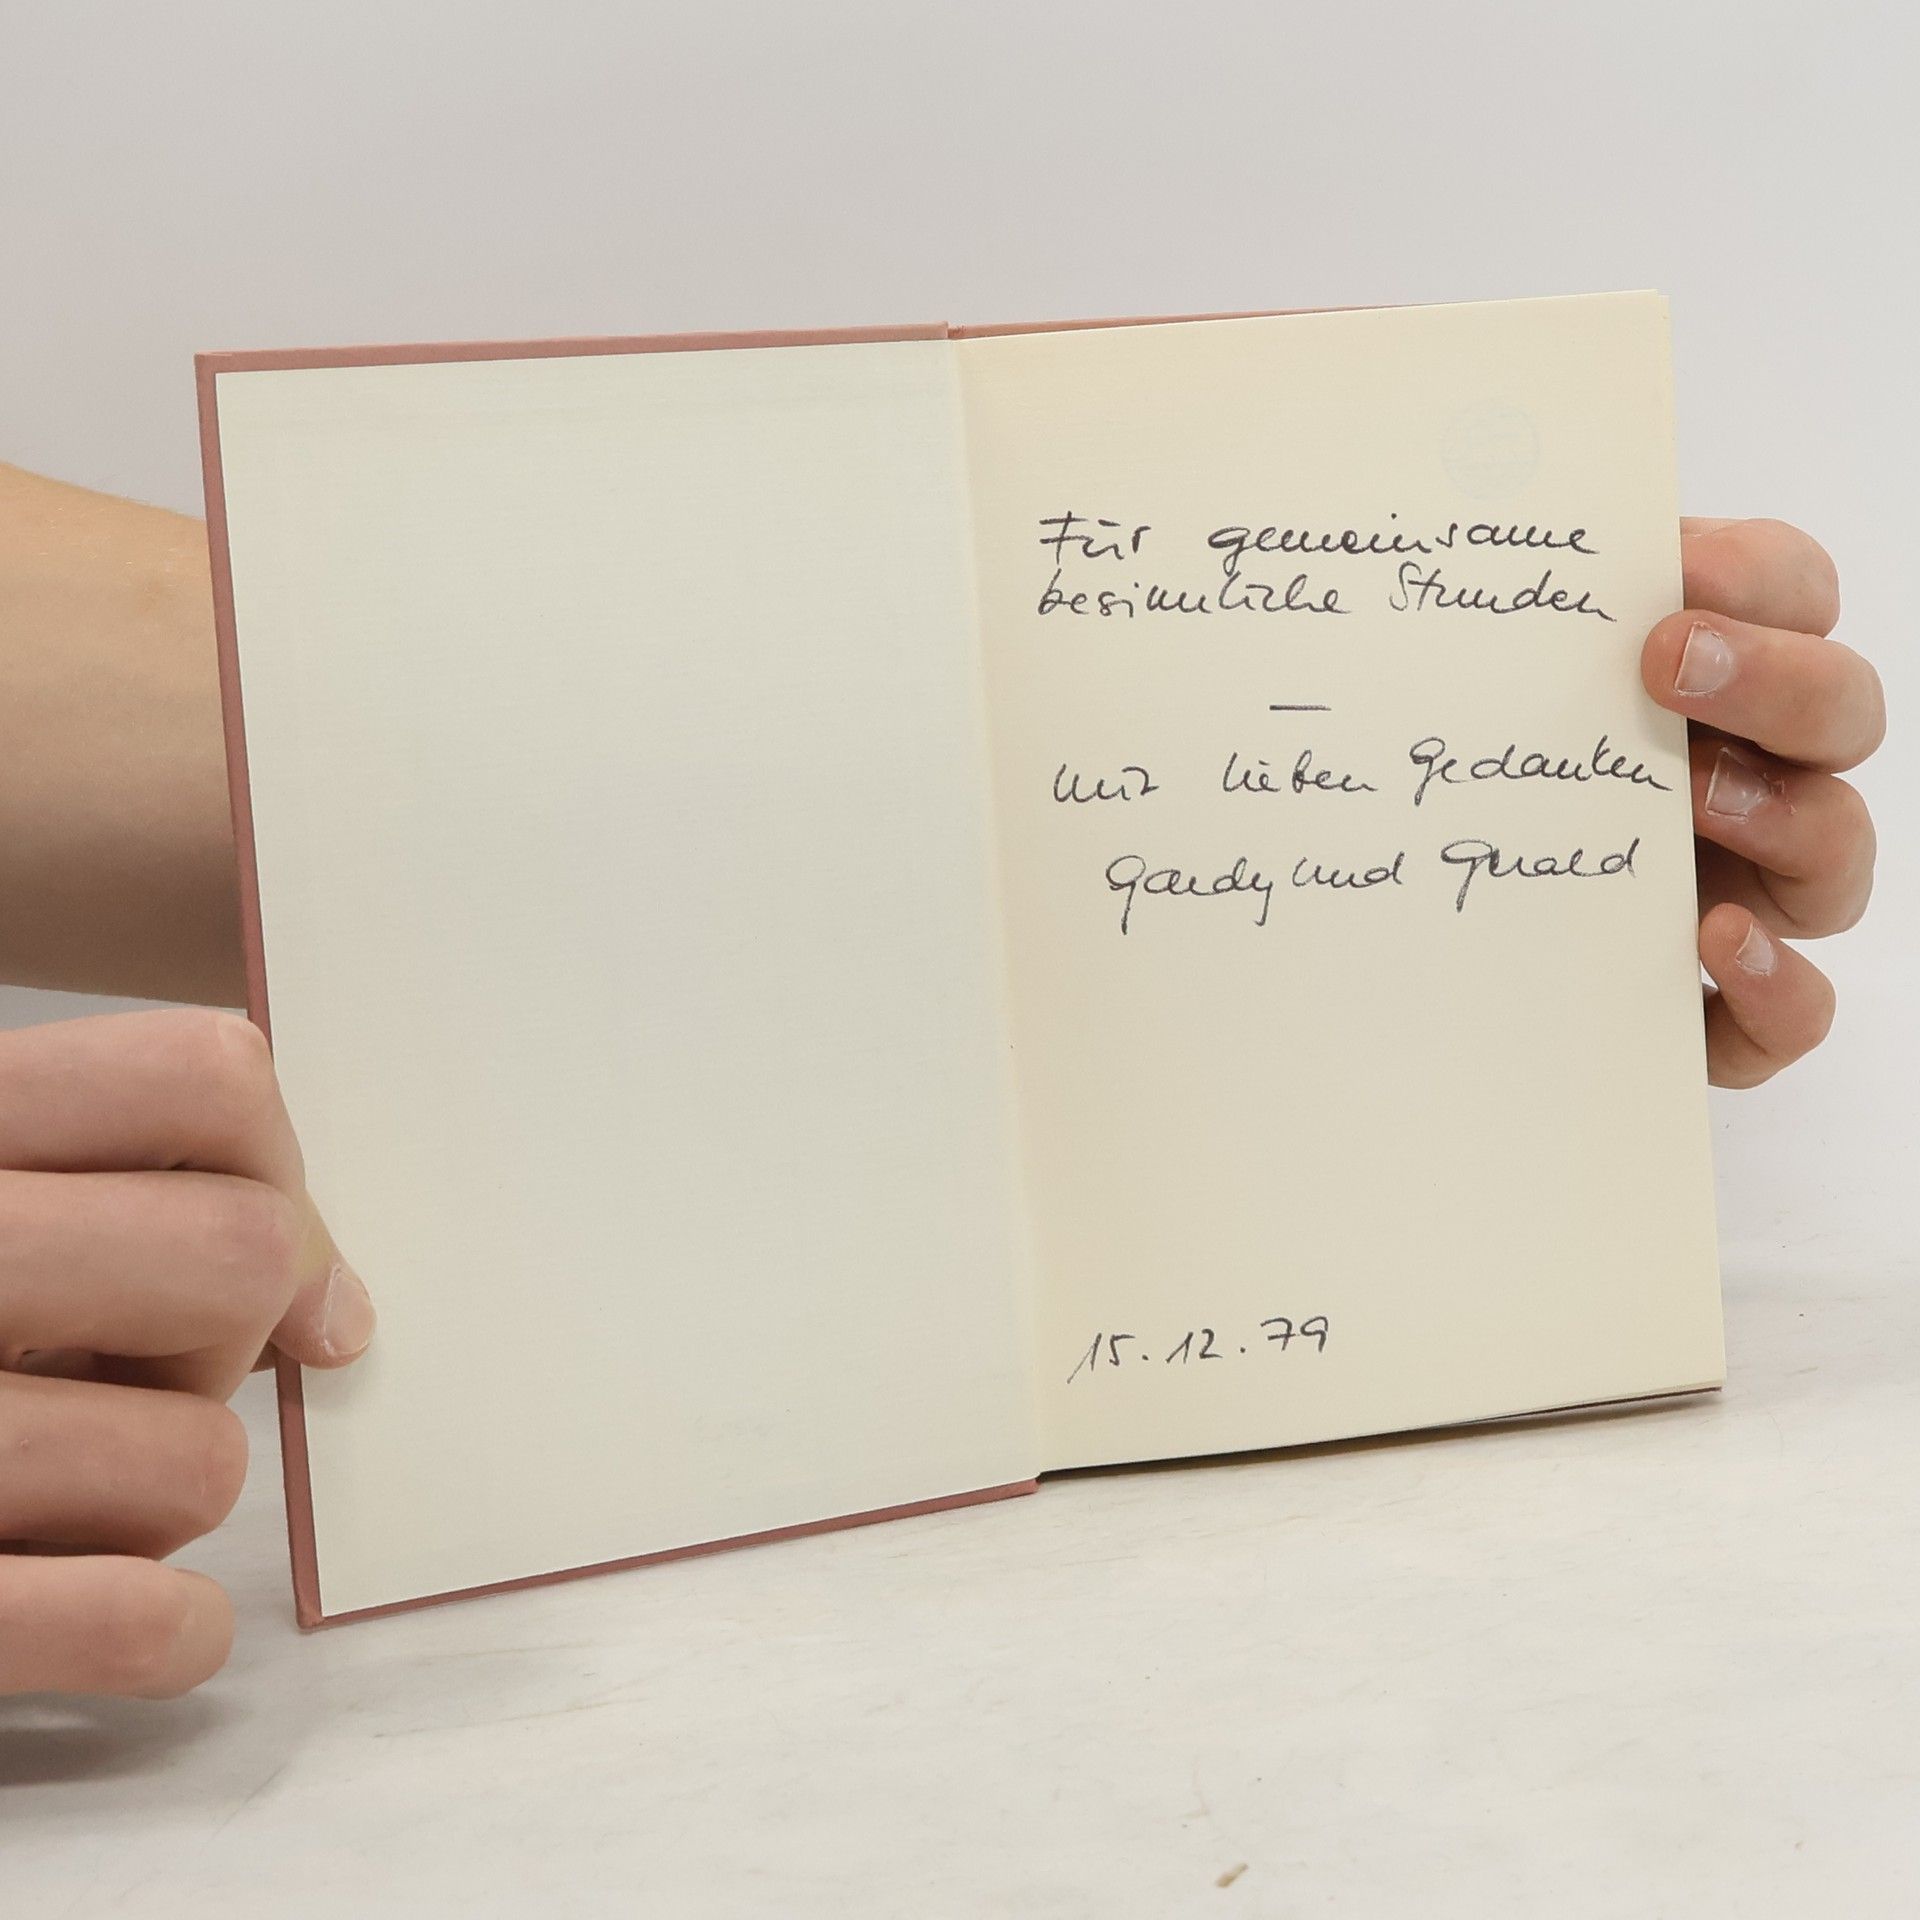 Für gemeinsame
besinnliche Stunden
—
mit lieben Gedanken
Gardy und Gerald
15.12.79